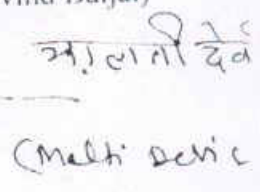 मालती देवी
(Malti Devi